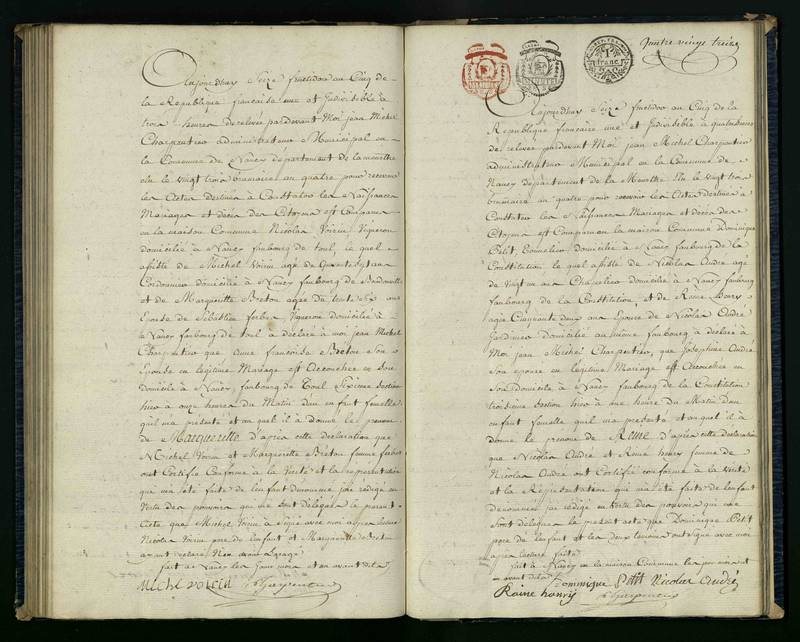 Aujourd'huy Seize fructidor au Cinq de
la Republique française une et Indivisible à
trois heures de relevée pardevant Moi jean Michel
Charpentier administrateur Municipal en
la Commune de Nancy departement de la meurthe
élu le vingt trois brumaire an quatre pour recevoir
les Actes destinés à Constater les Naissances
Mariages et décès des Citoyens est Comparus
en la maison Commune Nicolas Voirin Vigneron
domicilié à Nancy faubourg de toul, le quel
assisté de Michel Voirin agé de Quarante
Cordonnier domicilié à Nancy faubourg de
et de Margueritte Breton agée de trente ans
Epouse de Sébastien ferber Vigneron domicilié à
Nancy faubourg de toul a déclaré à moi jean Michel
Charpentier que Anne francoise Breton Son
Epouse en légitime Mariage est Accouchée en Son
domicile à Nancy, faubourg de Toul Sixieme Section
hier à onze heures du Matin d'un enfant femelle
quel ma présenté et au quel il à donné le prenom
de Margueritte d'après cette déclaration que
Michel Voirin et Margueritte Breton femme ferber
ont Certifié Conforme à la Verité et la représentation
que ma été faite de l'enfant denommé j'ai rédigé en
Vertu des pouvoirs qui me sont délégués le présent
Acte que Michel Voirin a signé avec moi après lecture
Nicolas Voirin pere de l'enfant et Margueritte Breton
ayant declaré N'en avoir L'usage
fait à Nancy les jour mois et an avant dits
Michel voirin Charpentier
quatre vingt treize
1 franc
Aujourd'huy Seize fructidor au Cinq de la
Republique française une et Indivisible à quatre heures
de relevée pardevant Moi jean Michel Charpentier
administrateur Municipal en la Commune de
Nancy département de la Meurthe Elu le vingt trois
brumaire an quatre pour recevoir les Actes destinés à
Constater les Naissances Mariages et décès des
Citoyens est Comparu en la maison Commune Dominique
Petit, Tonnelier domicilié à Nancy faubourg de la
Constitution le quel assisté de Nicolas André agé
de vingt un ans Chapelier domicilié à Nancy faubourg
faubourg de la Constitution, et de Reine henry
agée Cinquante deux ans Epouse de Nicolas André
Jardinier domicilié au même faubourg à declaré à
Moi jean Michel Charpentier, que Josephine André
Son épouse en legitime Mariage est Accouchée en
Son domicile à Nancy faubourg de la Constitution
troisieme Section hier à une heure du Matin d'un
enfant femelle quel ma presenté et au quel il à
donné le prenom de Reine d'après cette déclaration
que Nicolas André et Reine henry femme de
Nicolas André ont Certifié conforme à la Verité
et la Réprésentation qui m'a été faite de l'enfant
dénommé j'ai rédigé en Vertu des pouvoirs qui me
Sont délégués le présent acte que Dominique Petit
pere de l'enfant et les deux temoins ont signé avec moi
après lecture faite
fait à Nancy en la maison Commune les jour mois et
an avant dits Dominique Petit Nicolas André
Raine hanry Charpentier